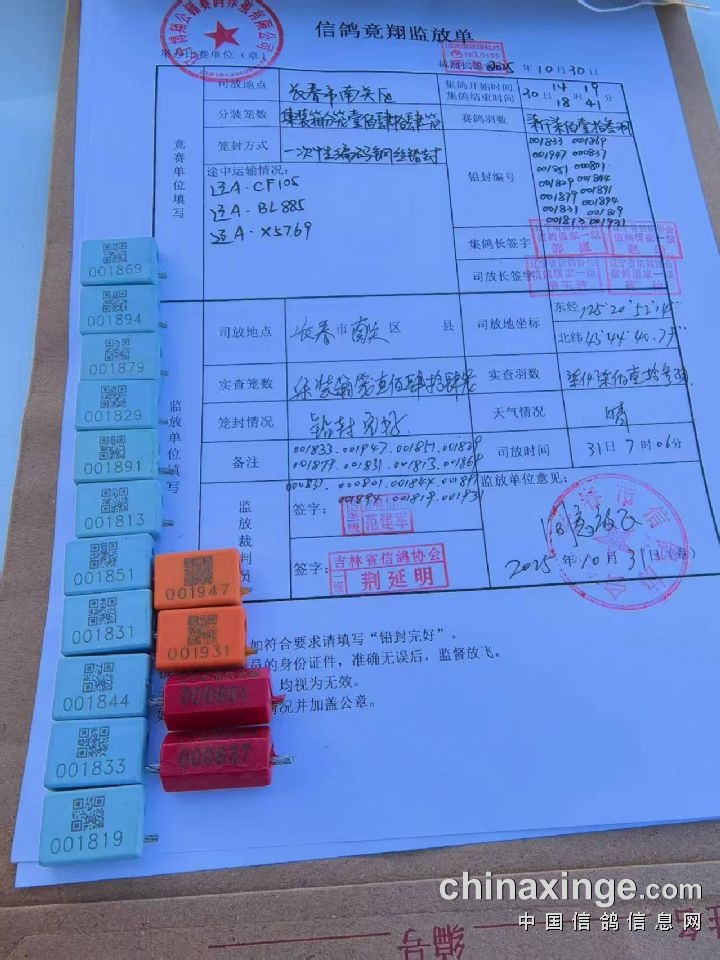 信鸽竞翔监放单
举办比赛单位（章）
2025年10月30日
竞赛单位填写
司放地点 长春市南关区
集鸽开始时间 30日14时19分
集鸽结束时间 18时41分
分装笼数 集装箱分笼壹佰肆拾肆笼
赛鸽羽数
笼封方式 一次性编码钢丝铅封
铅封编号
001833 001869
001947 000837
001851 000801
001829 001844
001879 001891
001831 001894
001813 001819
001931
途中运输情况：
辽A·CF105
辽A·BL885
辽A·X5769
集鸽长签字
司放长签字
监放单位填写
司放地点 长春市南关区 县
司放地坐标
东经 125°20′52.14″
北纬 43°44′40.77″
实查笼数
实查羽数
笼封情况 铅封完好
天气情况 晴
备注
001833.001947.001851.001829
001879.001831.001813.001869
000837.000801.001844.001891
001894.001819.001931
司放时间 31日7时06分
监放裁判员
签字：
范建军
签字：
吉林省信鸽协会
二级 荆延明
监放单位意见：
2025年10月31日（章）
如符合要求请填写“铅封完好”。
员的身份证件，准确无误后，监督放飞。
均视为无效。
情况并加盖公章。
001869
001894
001879
001829
001891
001813
001851
001831
001844
001833
001819
001947
001931
000801
000837
编号
chinaxinge.com
中国信鸽信息网